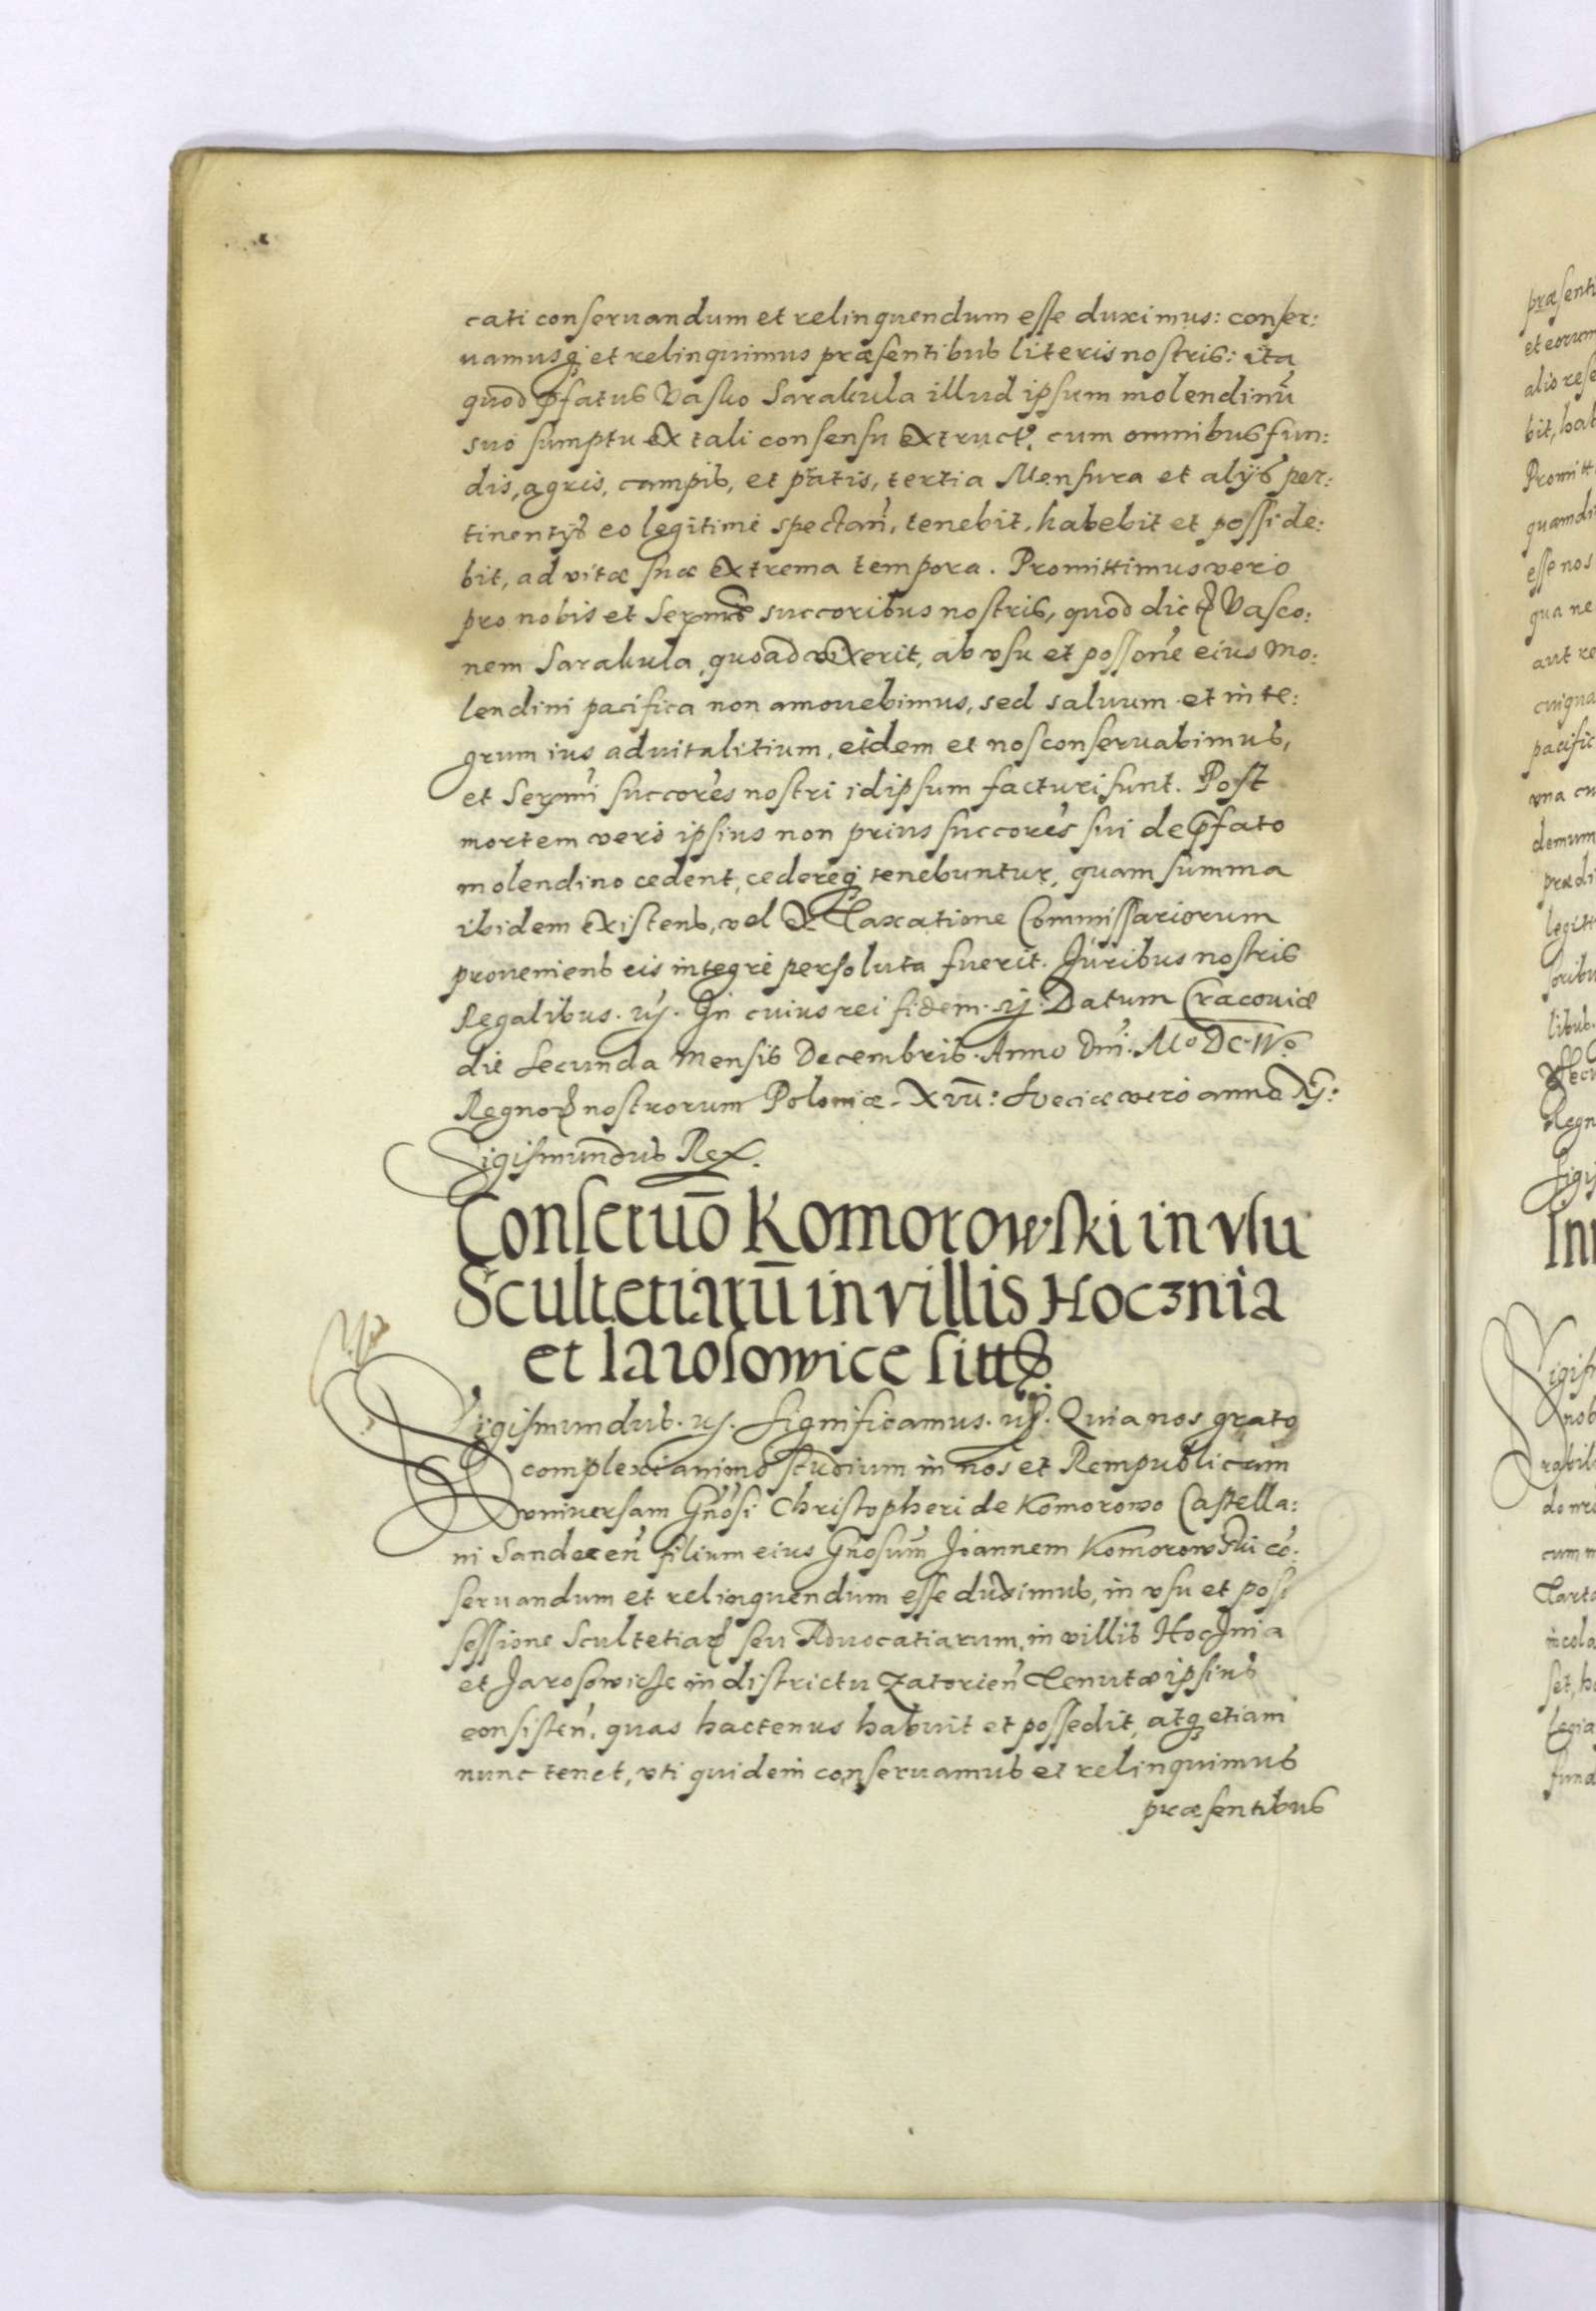 cati conseruandum et relinquendum esse duximus: conser:
uamusq; et relinquimus præsentibus literis nostris: ita
quod pfatus Vasko Sarakula illud ipsum molendinū
suo sumptu ex tali consensu extruct. cum omnibus fun:
dis, agris, campis, et pratis, tertia Mensura et alijs per:
tinentijs eo legitime spectan, tenebit, habebit et posside:
bit, ad vitæ suæ extrema tempora. Promittimus vero
pro nobis et Sermis succoribus nostris, quod dictꝝ Vasco:
nem Sarakula, quoad vixerit, ab vsu et possone eius Mo:
lendini pacifica non amouebimus, sed saluum et inte:
grum ius aduitalitium, eidem et nos conseruabimus,
et Sermi succores nostri idipsum facturi sunt. Post
mortem vero ipsius non prius succores sui de pfato
molendino cedent, cedereq; tenebuntur, quam summa
ibidem existens, vel ex Taxatione Commissariorum
proueniens eis integre persoluta fuerit. Juribus nostris
Regalibus. In cuius rei fidem. Datum Cracouiæ
die Secunda Mensis Decembris. Anno Dni. Mo DC
Regnoꝝ nostrorum Poloniæ. XVII: Sueciæ vero anno XI:
Sigismundus Rex.
Conseruō Komorowski in vsu
Scultetiarū in villis Hocznia
et Iarosowice sittꝝ.
Sigismundus. Significamus. Quia nos grato
complexi animo studium in nos et Rempublicam
vniuersam Gnosi Christopheri de Komorowo Castella:
ni Sandecen filium eius Gnosum Joannem Komorowski cō:
seruandum et relinquendum esse duximus, in vsu et pos:
sessione Scultetiaꝝ seu Aduocatiarum, in villis Hocznia
et Jarosowicze in districtu Zatorien Tenutæ ipsius
consisten. quas hactenus habuit et possedit, atq; etiam
nunc tenet, vti quidem conseruamus et relinquimus
præsentibus